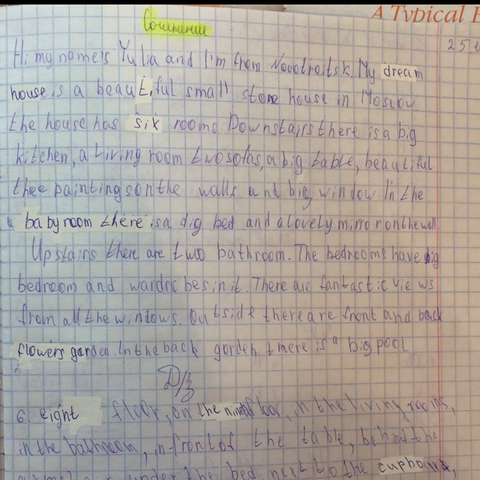 A Typical
Сочинение
25.1
Hi my name's Yulia and I'm from Novotroitsk. My dream
house is a beautiful small stone house in Moscow
the house has six rooms Downstairs there is a big
kitchen, a living room two sofas, a big table, beautiful
thee paintings on the walls and big window In the
baby room there is a dig bed and a lovely mirror on the wall
Upstairs there are two bathroom. The bedrooms have big
bedroom and wardrobes in it. There are fantastic views
from all the windows. Outside there are front and back
flowers garden. In the back garden there is a big pool
D/з
6. eight floor, on the ninth floor, in the living rooms,
in the bathroom, in front of the table, behind the
under the bed next to the cupboard,